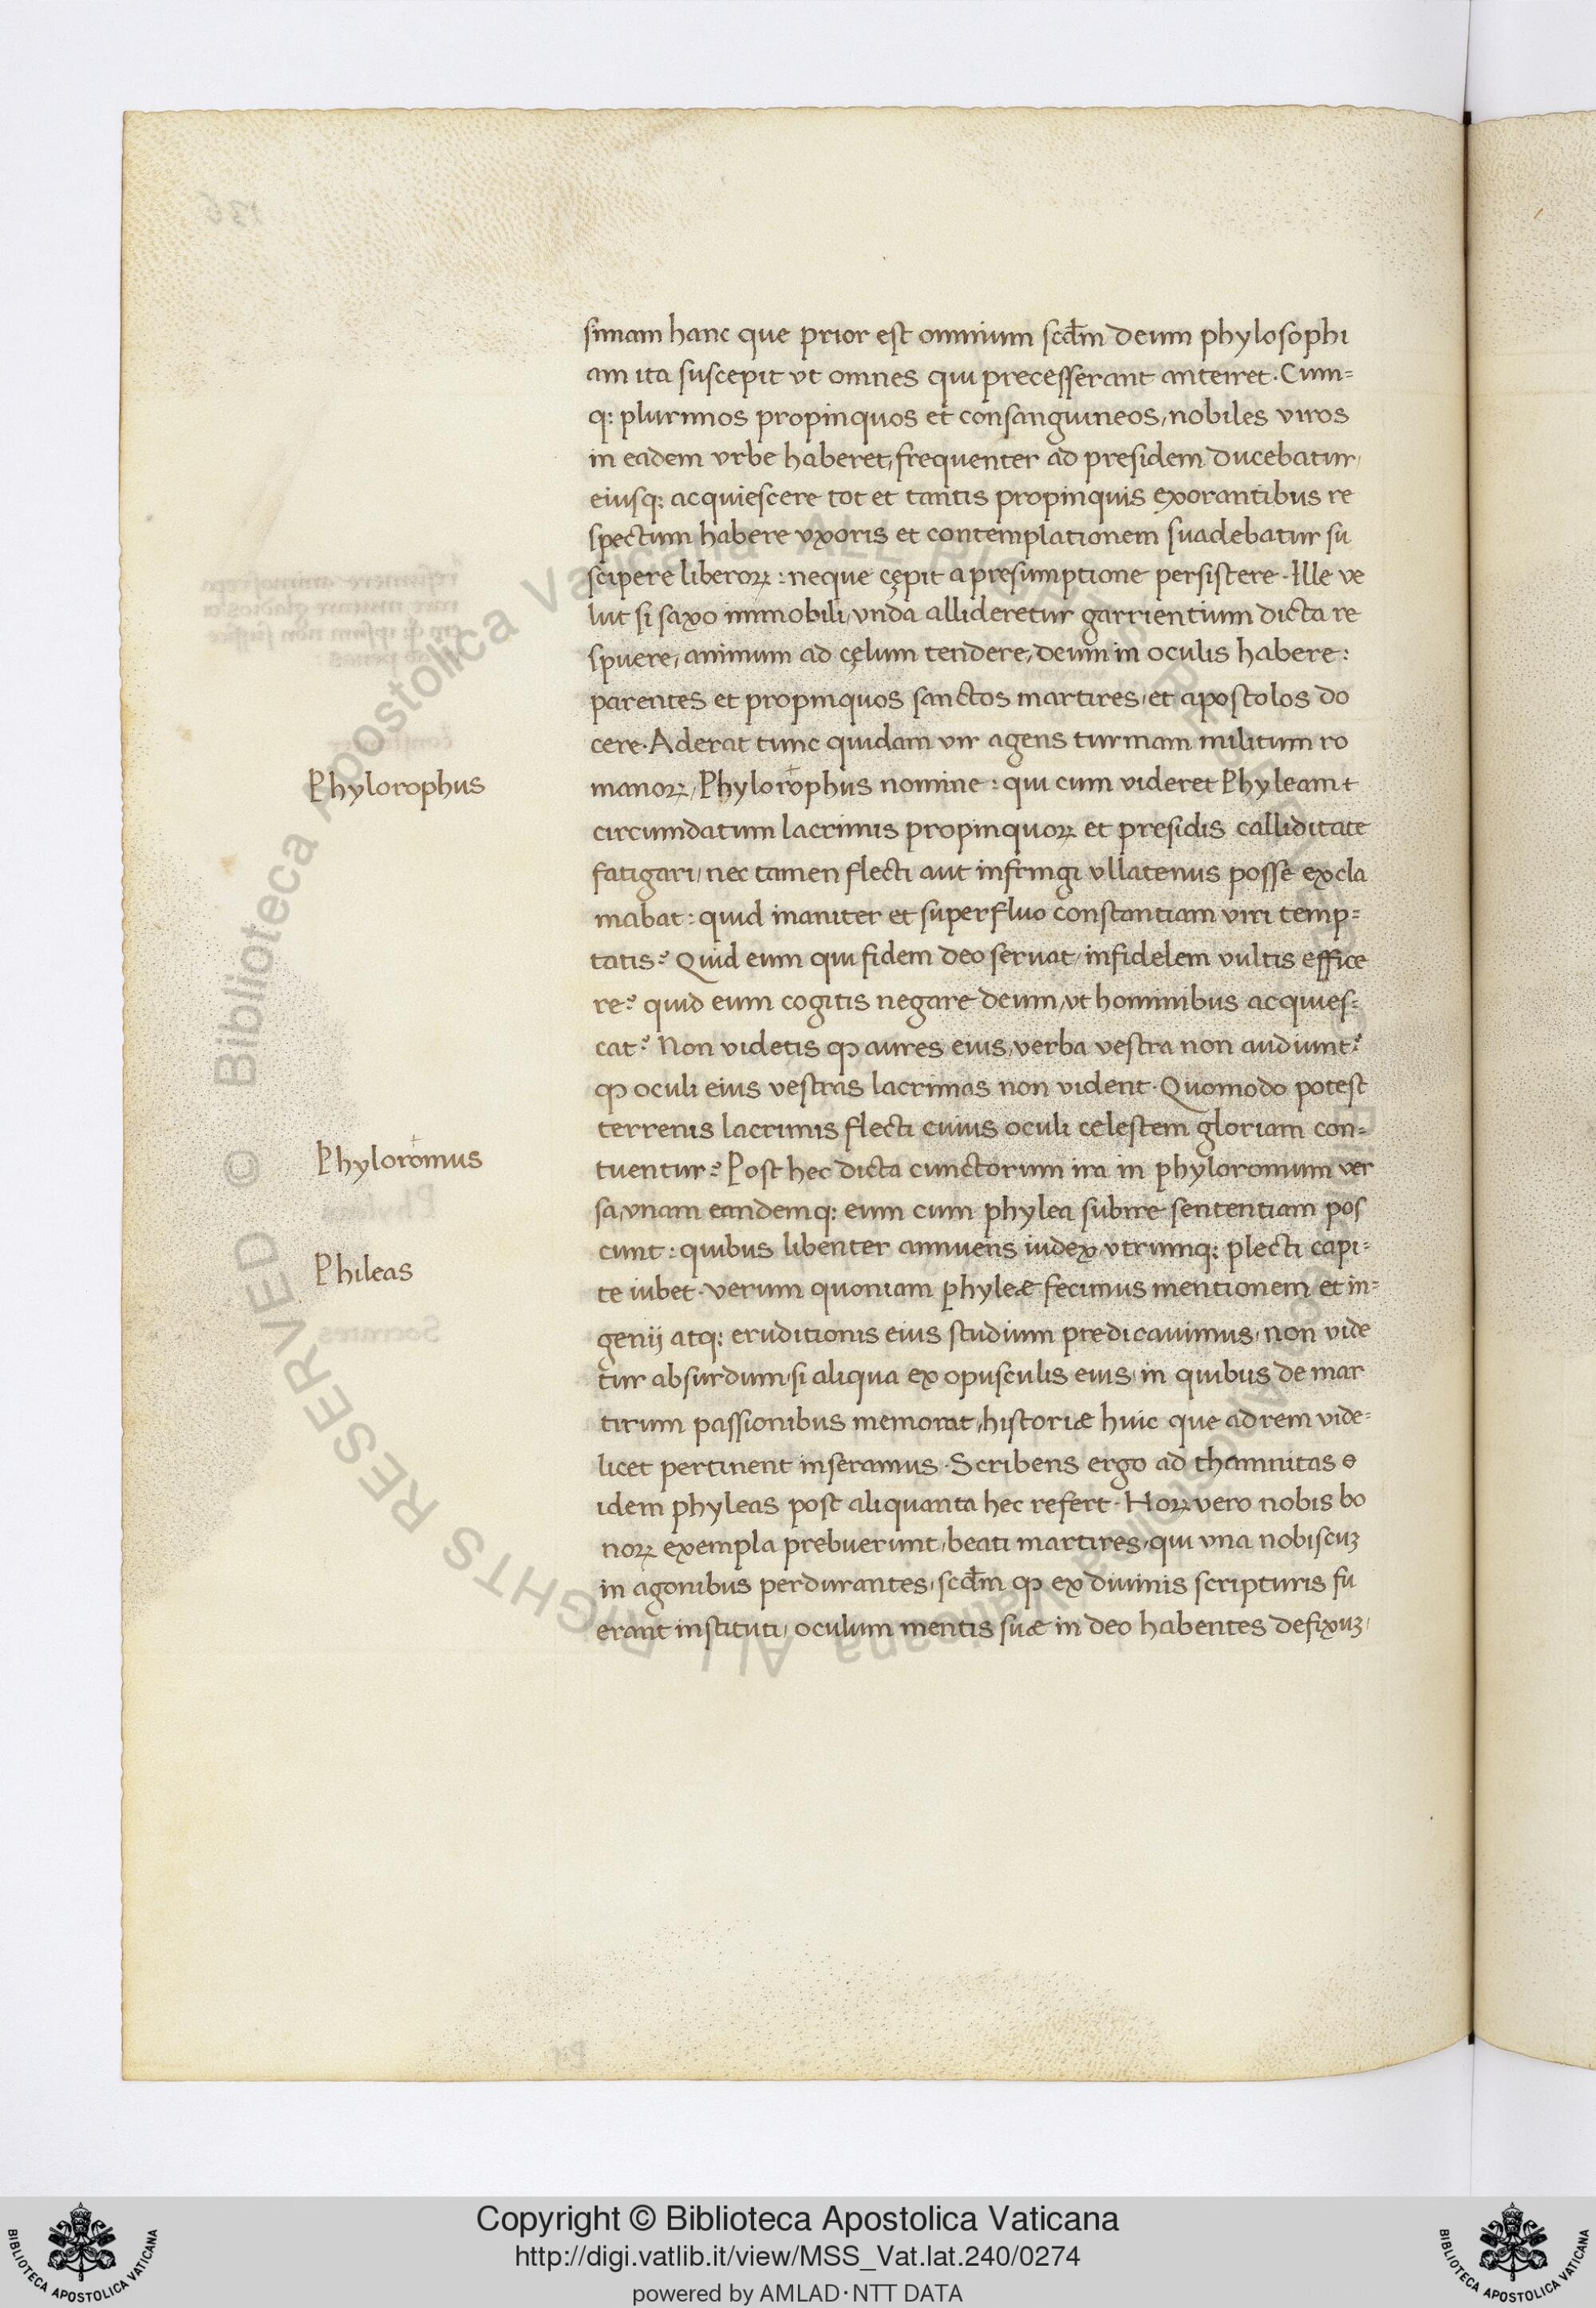 simam hanc que prior est omnium scd̅m deum phylosophi
am ita suscepit vt omnes qui precesserant anteiret. Cum=
q: plurimos propinquos et consanguineos, nobiles viros
in eadem vrbe haberet, frequenter ad presidem ducebatur,
eiusq: acquiescere tot et tantis propinquis exorantibus re
spectum habere vxoris et contemplationem suadebatur su
scipere liberoꝝ: neque cępit a presumptione persistere. Ille ve
lut si saxo immobili, vnda allideretur garrientium dicta re
spuere, animum ad cęlum tendere, deum in oculis habere:
parentes et propinquos sanctos martires, et apostolos do
cere. Aderat tunc quidam vir agens turmam militum ro
Phylorophus
manoꝝ, Phylorophus nomine: qui cum videret Phyleam t
circumdatum lacrimis propinquoꝝ et presidis calliditate
fatigari, nec tamen flecti aut infringi vllatenus posse excla
mabat: quid inaniter et superfluo constantiam viri temp=
tatis? Quid eum qui fidem deo seruat, infidelem vultis effice
re? quid eum cogitis negare deum, vt hominibus acquies=
cat? Non videtis ꝙ aures eius, verba vestra non audiunt?
ꝙ oculi eius vestras lacrimas non vident. Quomodo potest
terrenis lacrimis flecti cuius oculi celestem gloriam con=
Phyloromus
tuentur? Post hec dicta cunctorum ira in phyloromum ver
sa, vnam eandemq: eum cum phylea subire sententiam pos
cunt: quibus libenter annuens iudex vtrumq: plecti capi=
Phileas
te iubet. verum quoniam phyleæ fecimus mentionem et in=
genij atq: eruditionis eius studium predicauimus, non vide
tur absurdum, si aliqua ex opusculis eius, in quibus de mar
tirum passionibus memorat, historiæ huic que ad rem vide=
licet pertinent inseramus. Scribens ergo ad thamnitas
idem phyleas post aliquanta hec refert. Hoꝝ vero nobis bo
noꝝ exempla prebuerunt, beati martires, qui vna nobiscuꝫ
in agonibus perdurantes, scd̅m ꝙ ex diuinis scripturis fu
erant instituti, oculum mentis suæ in deo habentes defixuꝫ,
© Biblioteca Apostolica Vaticana ALL RIGHTS RESERVED
Copyright © Biblioteca Apostolica Vaticana
http://digi.vatlib.it/view/MSS_Vat.lat.240/0274
powered by AMLAD·NTT DATA
BIBLIOTECA APOSTOLICA VATICANA
BIBLIOTECA APOSTOLICA VATICANA